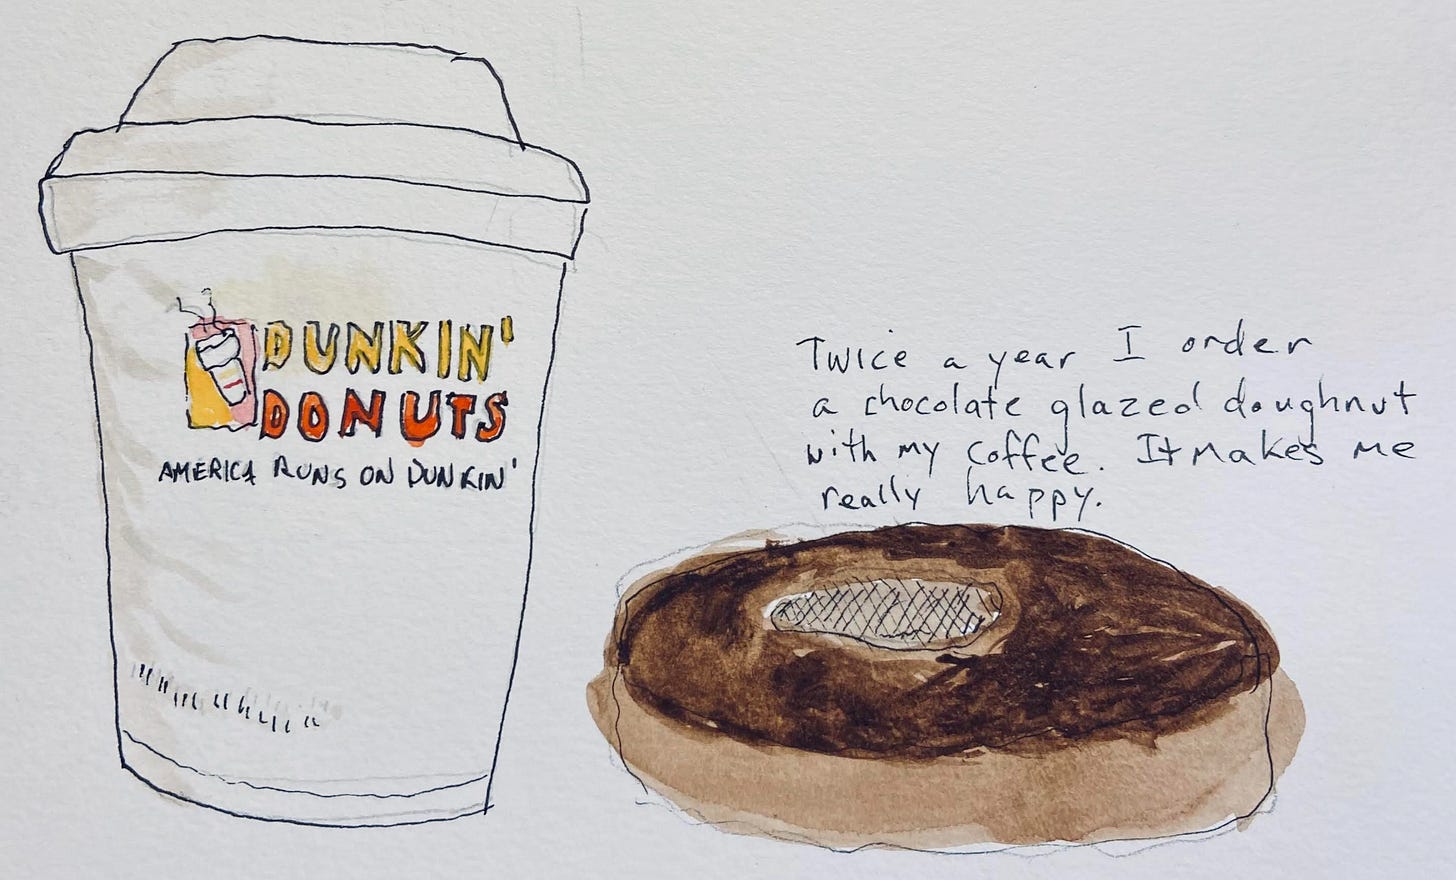 DUNKIN'
DONUTS
AMERICA RUNS ON DUNKIN'
Twice a year I order
a chocolate glazed doughnut
with my coffee. It makes me
really happy.